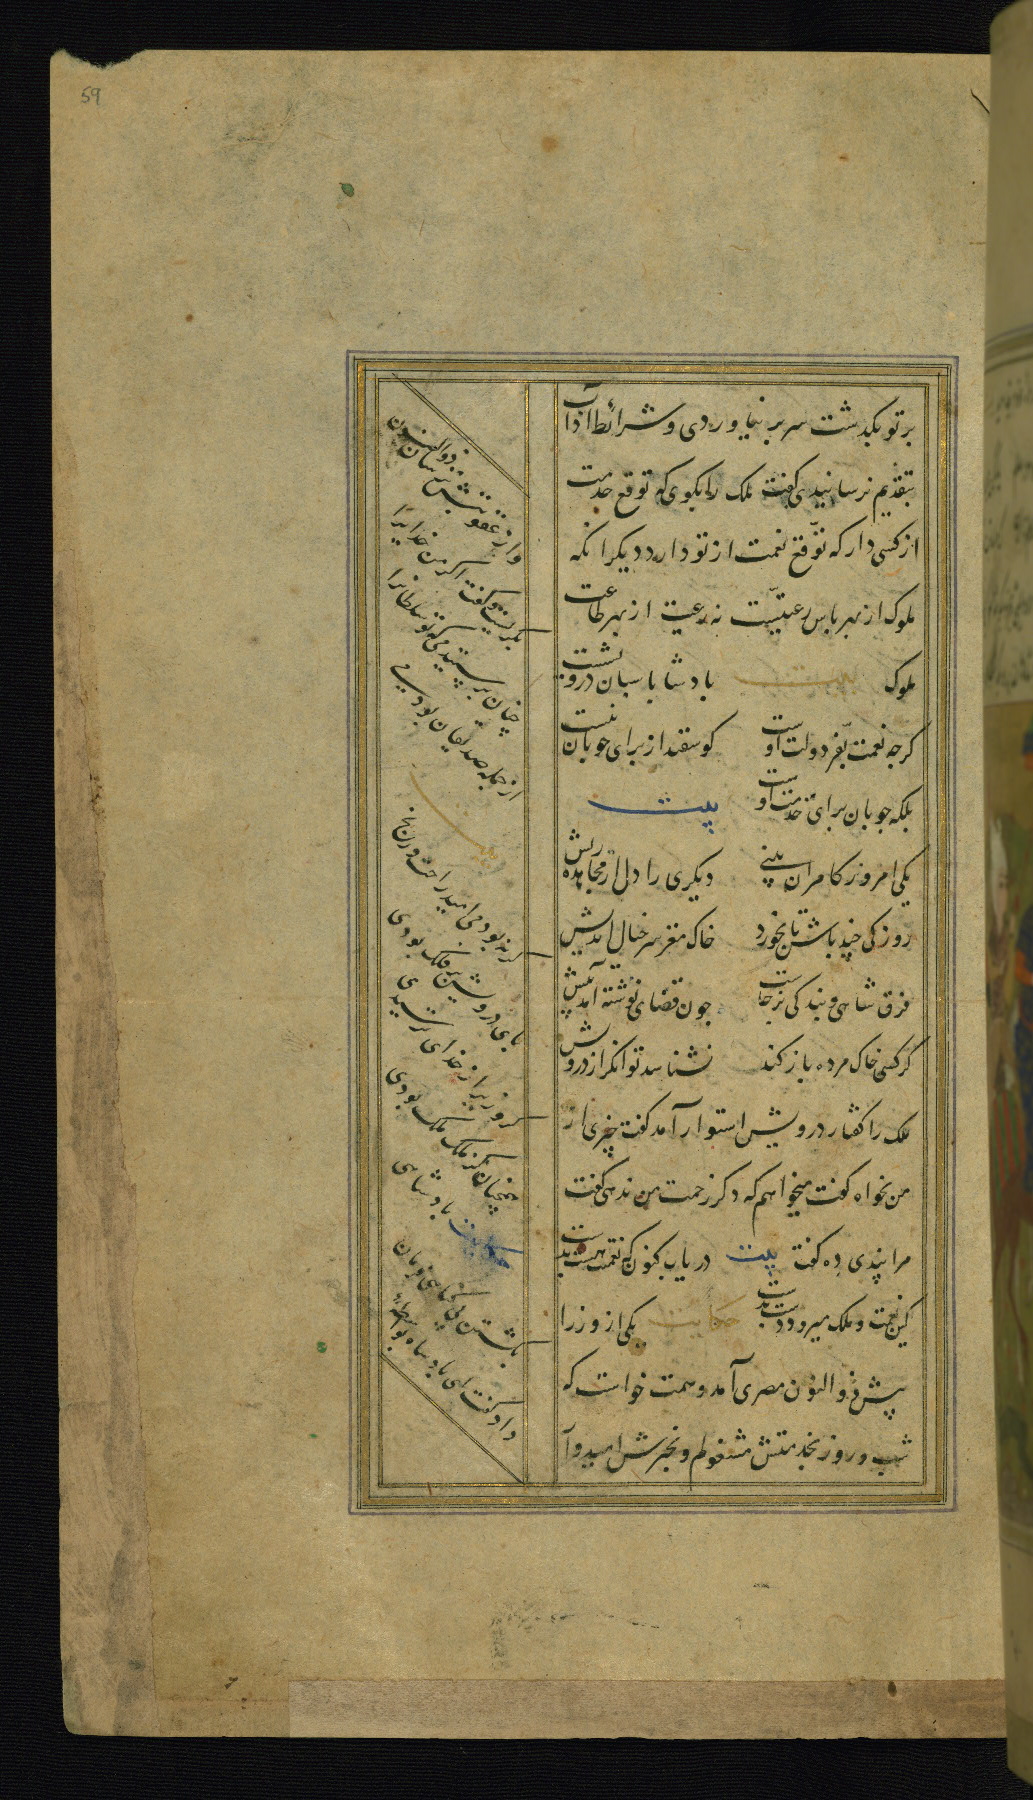 59
بر تو بگذشت سر بر نیاوردی و شرائط آداب
بتقدیم نرسانیدی گفت ملک را بگوی که توقع خدمت
از کسی دار که توقع نعمت از تو دارد دیگر آنکه
ملوک از بهر پاس رعیتست نه رعیت از بهر طاعت
ملوک بیت پادشا پاسبان درویشت
کرچه نعمت بفر دولت اوست کوسفند از برای چوپان نیست
بلکه چوپان برای خدمت اوست بیت
یکی امروز کامران بینی دیکری را دل از مجاهده ریش
روزکی چند باش تا بخورد خاک مغز سر خیال اندیش
فرق شاهی و بندکی برخاست چون قضای نوشته آمد پیش
کر کسی خاک مرده باز کند نشناسد توانکر از درویش
ملک را کفتار درویش استوار آمد کفت چیزی از
من بخواه کفت میخواهم که دکر زحمت من ندهی کفت
مرا پندی ده کفت بیت دریاب کنون که نعمتت هست بدست
کین نعمت و ملک میرود دست بدست حکایت یکی از وزرا
پیش ذوالنون مصری آمد و همت خواست که
شب و روز بخدمتش مشغولم و بخیرش امیدوار
و از عقوبتش ترسان ذوالنون
بکریست و کفت اکر من خدایرا
چنان پرستیدمی که تو سلطانرا
از جمله صدیقان بودمی
بیت
کر نبودی امید راحت و رنج
پای درویش بر فلک بودی
کر وزیر از خدای ترسیدی
همچنان کز ملک ملک بودی
حکایت پادشاهی
بکشتن بی کناهی فرمان
داد کفت ای پادشاه بواسطهٔ